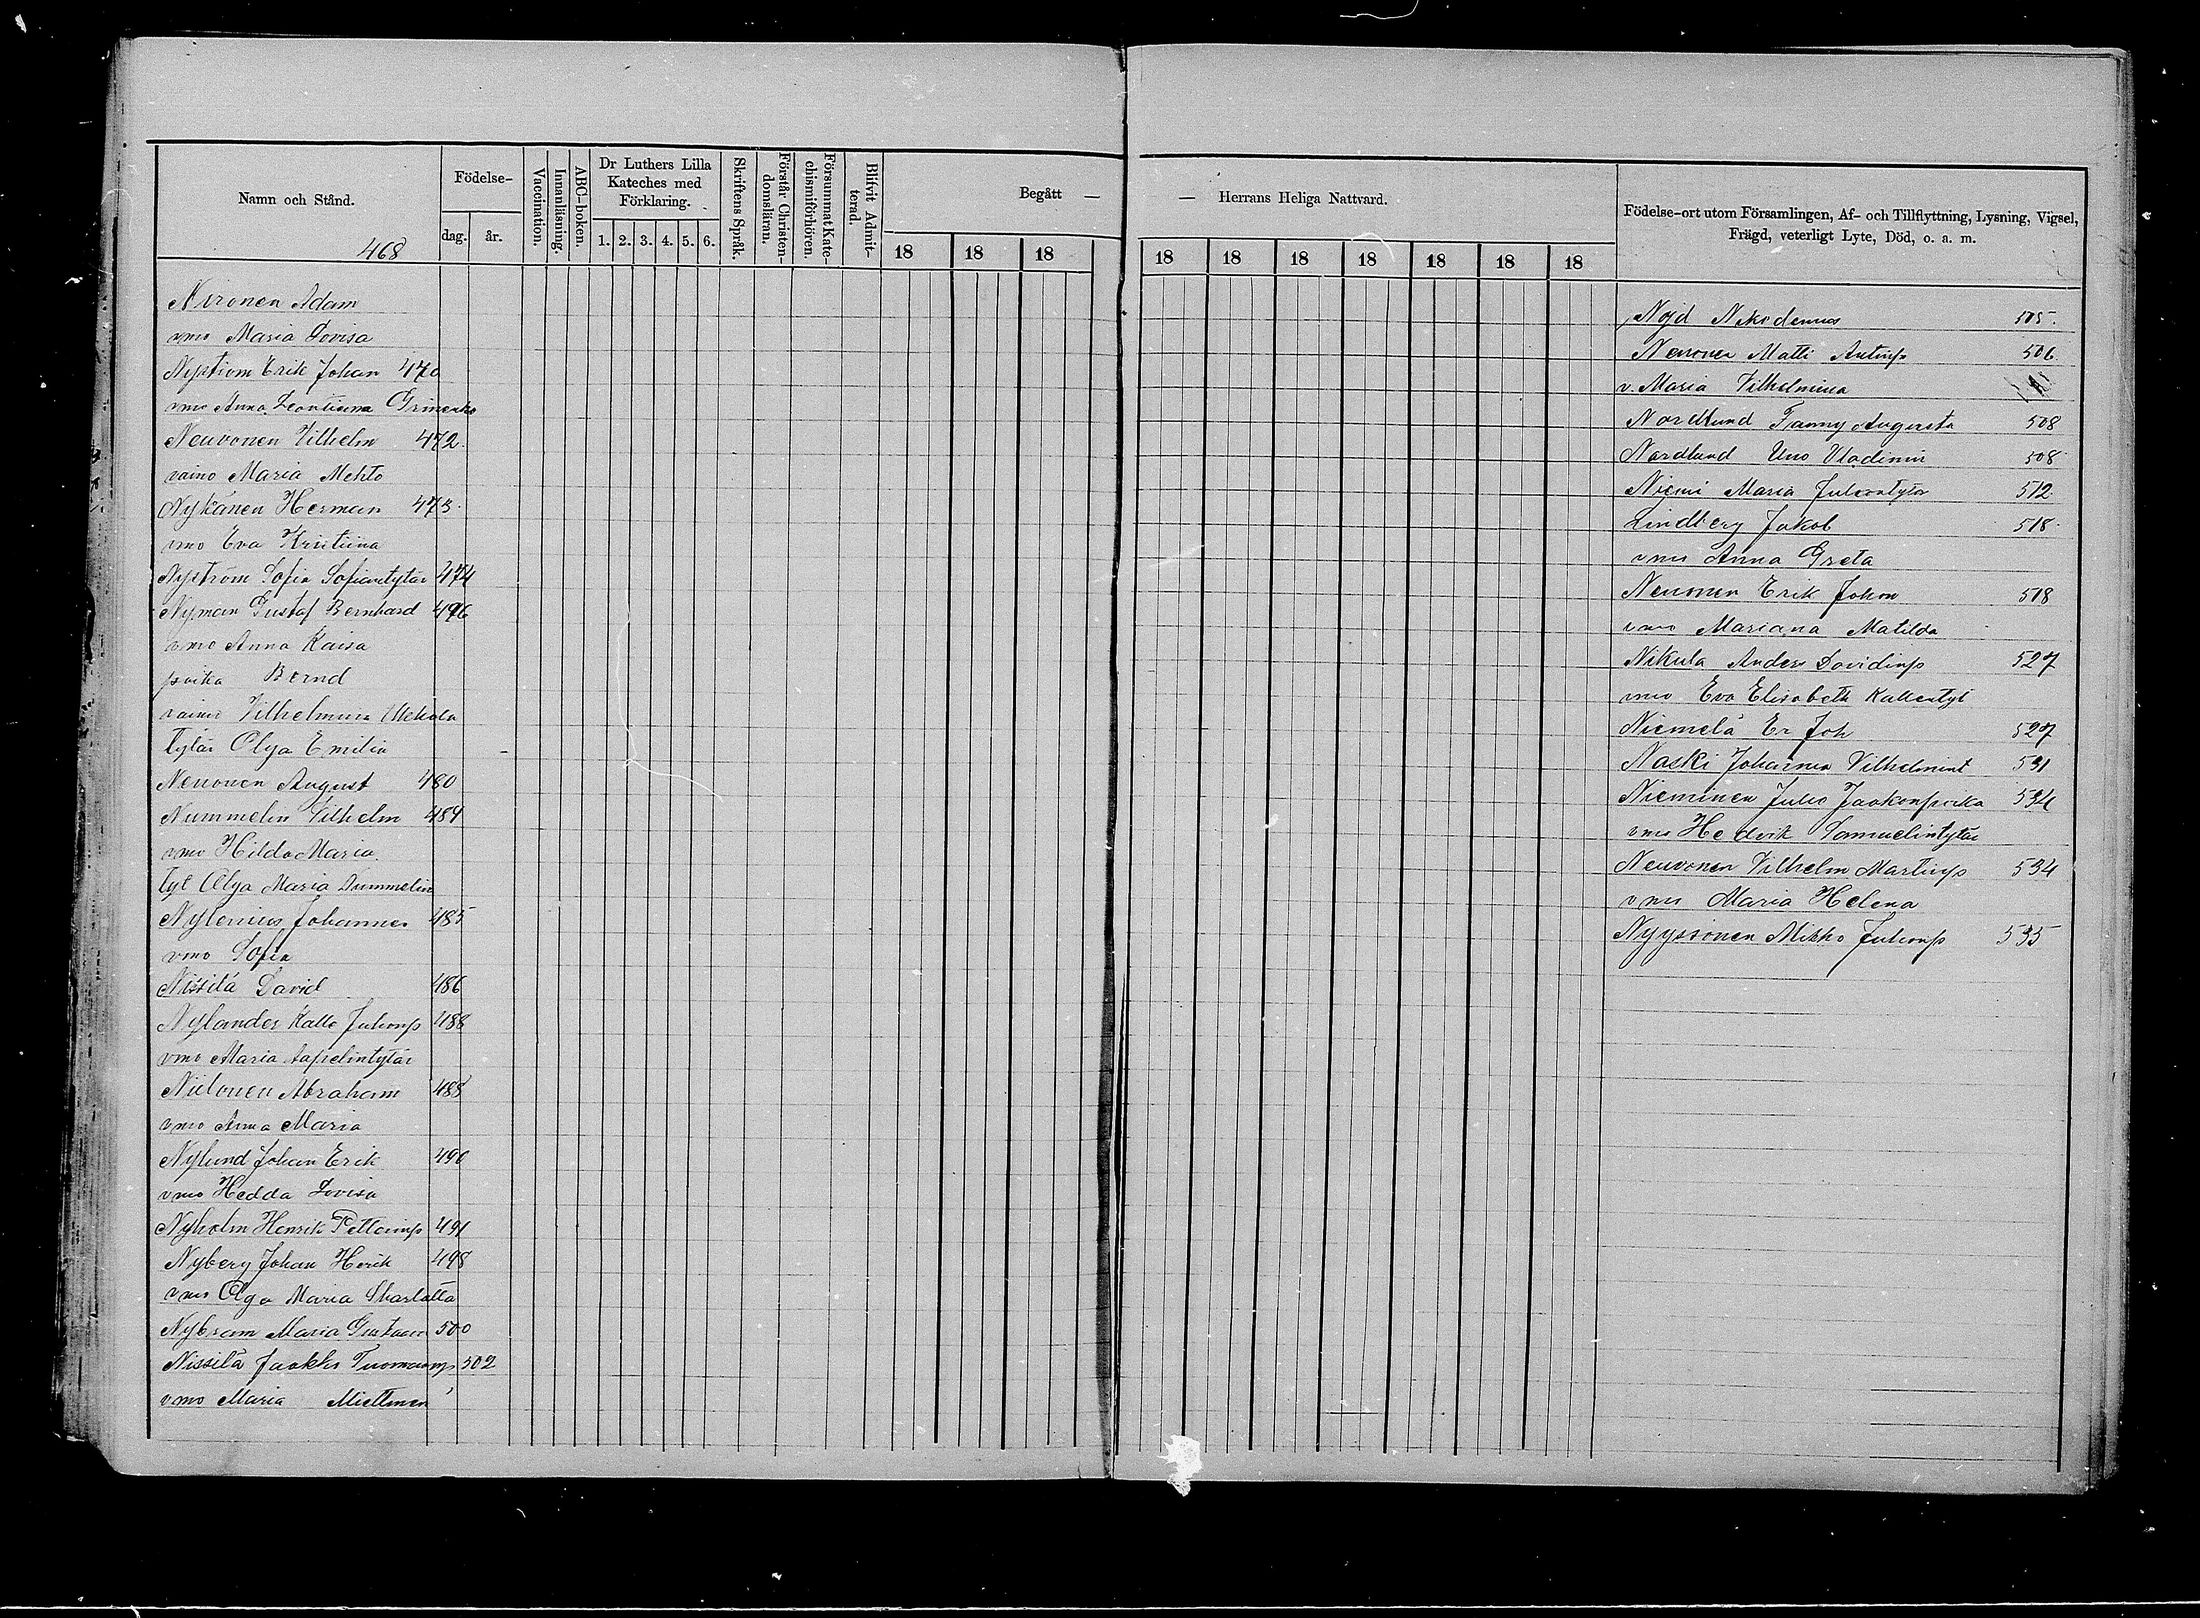 Namn och Stånd.
468
Födelse-
dag. år.
Vaccination.
Innanläsning.
ABC-boken.
Dr Luthers Lilla
Kateches med
Förklaring.
1. 2. 3. 4. 5. 6.
Skriftens Språk.
Förstår Christen-
domsläran.
Försummat Kate-
chismiförhören.
Blifvit Admit-
terad.
Begått —
18 18 18
— Herrans Heliga Nattvard.
18 18 18 18 18 18 18
Födelse-ort utom Församlingen, Af- och Tillflyttning, Lysning, Vigsel,
Frägd, veterligt Lyte, Död, o. a. m.
Nironen Adam
vmo Maria Lovisa
Nyström Erik Johan 470
vmo Anna
Neuvonen Vilhelm 472.
vaimo Maria Mehto
Nykänen Herman 473.
vmo Eva Kristiina
Nyström Sofia Sofiantytär 474
Nyman Gustaf Bernhard 476
vmo Anna Kaisa
poika Bernd
vaimo Vilhelmina
tytär Olga Emilia
Neuvonen August 480
Nummelin Vilhelm 484
vmo Hilda Maria
tyt Olga Maria Nummelin
Nylenius Johannes 485
vmo Sofia
Nissilä David 486
Nylander Kalle Juhonp 488
vmo Maria Aapelintytär
Niilonen Abraham 488
vmo Anna Maria
Nylund Johan Erik 490
vmo Hedda Lovisa
Nyholm Henrik 491
Nyberg Johan Henrik 498
vmo Olga Maria Charlotta
Maria 500
Nissilä Jaakko Tuomaanp 502
vmo Maria Miettinen
Nöjd Nikodemus 505.
Neuvonen Matti Antinp 506
v. Maria Vilhelmina
Nordlund Fanny Augusta 508
Nordlund Uno Vladimir 508
Niemi Maria Juhontytär 512
Lindberg Jakob 518.
vmo Anna Greta
Neuvonen Erik Johan 518
vmo Mariana Matilda
Nikula Anders Davidinp 527
vmo Eva Elisabeth Kallentyt
Niemelä Er Joh 527
Naski Johanna Vilhelmint 531
Nieminen Juho Jaakonpoika 534
vmo Hedvik Samuelintytär
Neuvonen Vilhelm Martinp 534
vmo Maria Helena
Nyyssönen Mikko Juhonp 535